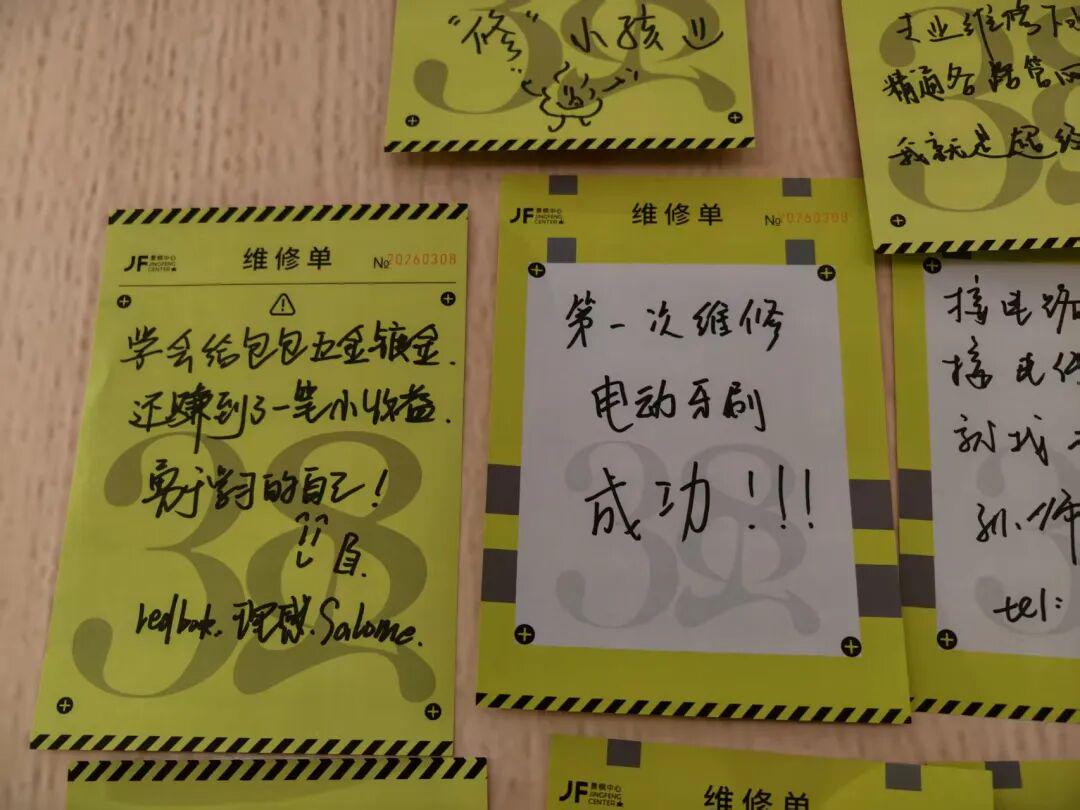 “修”小孩
专业维修下水
精通各路管网
我就是超级
JF 景枫中心
JINGFENG CENTER
维修单
№20260308
学会给包包五金镀金.
还赚到了一笔小收益.
勇于学习的自己!
redbook. 理想. Salome.
38
JF 景枫中心
JINGFENG CENTER
维修单
№20260308
第一次维修
电动牙刷
成功!!!
38
接电
接电
就找
tel:
JF 景枫中心
JINGFENG CENTER
维修单